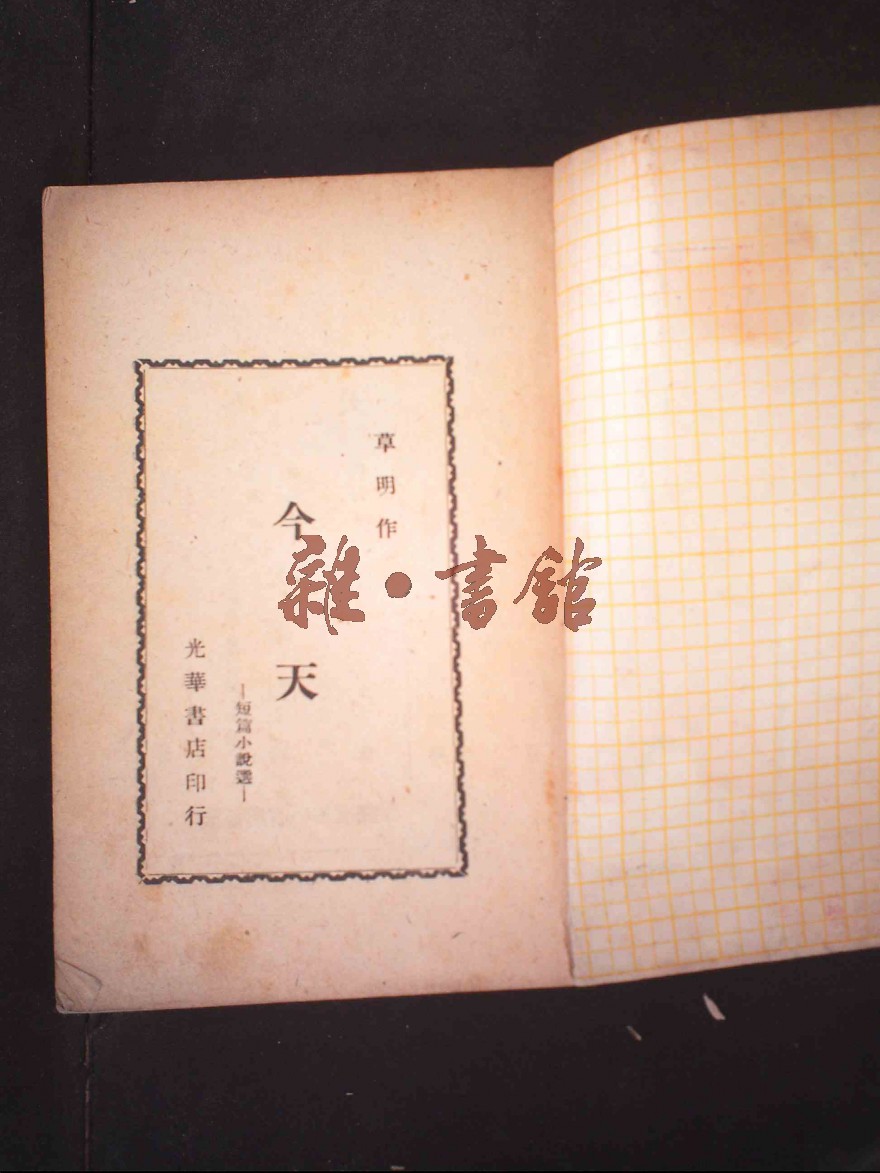 草明作
今天
—短篇小說選—
光華書店印行
雜•書館